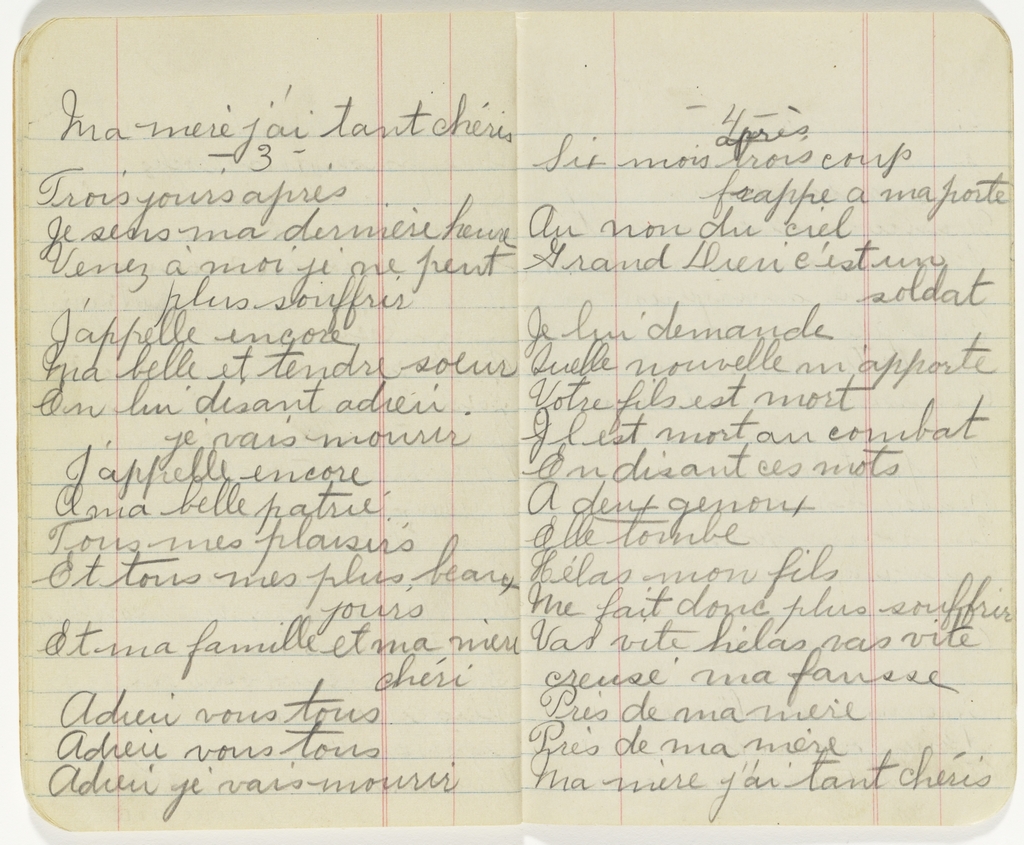 Ma mère j'ai tant chéris
- 3 -
Trois jours après
Je sens ma dernière heure
Venez à moi je ne peut
plus souffrir
J'appelle encore
Ma belle et tendre soeur
En lui disant adieu.
je vais mourir
J'appelle encore
A ma belle patrie
Tous mes plaisirs
Et tous mes plus beaux
jours
Et ma famille et ma mère
chéri
Adieu vous tous
Adieu vous tous
Adieu je vais mourir
- 4 -
après
Six mois trois coup
frappe a ma porte
Au non du ciel
Grand Dieu c'est un
soldat
Je lui demande
Quelle nouvelle m'apporte
Votre fils est mort
Il est mort au combat
En disant ces mots
A deux genoux
Elle tombe
Hélas mon fils
Me fait donc plus souffrir
Vas vite hélas vas vite
creusé ma fausse
Près de ma mère
Près de ma mère
Ma mère j'ai tant chéris